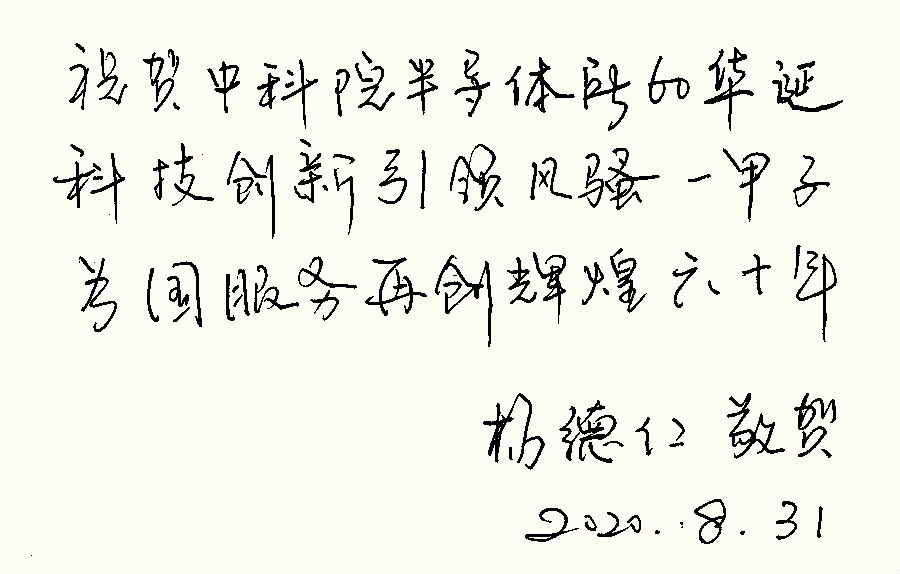 祝贺中科院半导体所60华诞
科技创新引领风骚一甲子
为国服务再创辉煌六十年
杨德仁 敬贺
2020.8.31